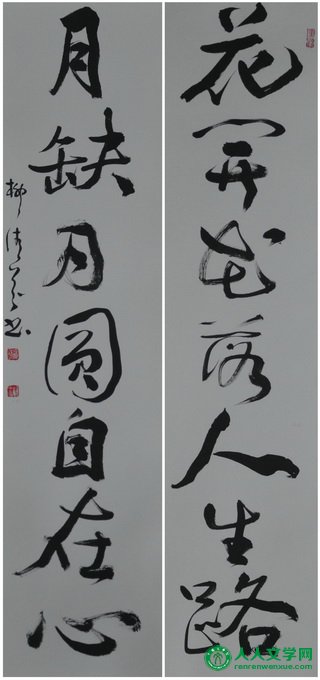 花开花落人生路
月缺月圆自在心
人人文学网
renrenwenxue.com